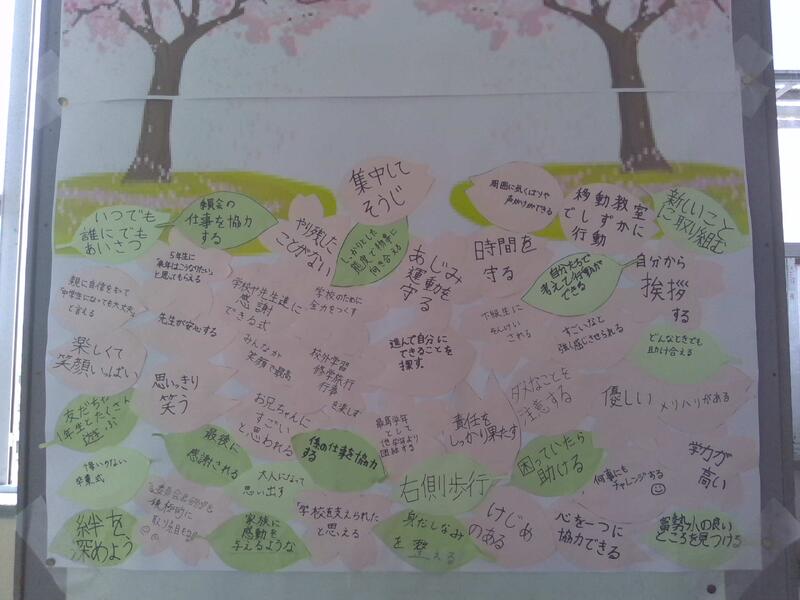 集中して
そうじ
周囲に気くばりや
声かけができる
移動教室
でしずかに
行動
新しいこと
に取り組む
いつでも
誰にでも
あいさつ
委員会の
仕事を協力
する
やり残した
ことがない
しっかりとした
態度で物事に
向き合える
あじみ
運動を
守る
時間を
守る
自分たちで
考えて行動が
できる
自分から
挨拶
する
親に自信をもって
「中学生になっても大丈夫」
と言える
5年生に
「来年はこうなりたい」
と思ってもらえる
先生が安心する
学校や先生達に
感謝
できる式
学校のために
全力をつくす
みんなが
笑顔で最高
校外学習
修学旅行
行事
を楽しむ
進んで自分に
できることを
探す。
下級生に
そんけい
される
すごいなと
強く感じさせられる
どんなときでも
助け合える
楽しくて
笑顔いっぱい
思いっきり
笑う
お兄ちゃんに
すごい
と思われる
最高学年
として
他学年より
団結する
責任を
しっかり果たす
ダメなことを
注意する
優しい
メリハリがある
友だちや
1年生とたくさん
遊ぶ
最後に
感謝される
係の仕事を協力
する
困っていたら
助ける
何事にも
チャレンジする
学力が
高い
悔いのない
卒業式
大人になって
思い出す
右側歩行
絆を
深めよう
積極的に
取り組もう
家族に
感動を
与えるような
「学校を支えられた」
と思える
身だしなみ
を整える
けじめ
のある
心を一つに
協力できる
の良い
ところを見つける